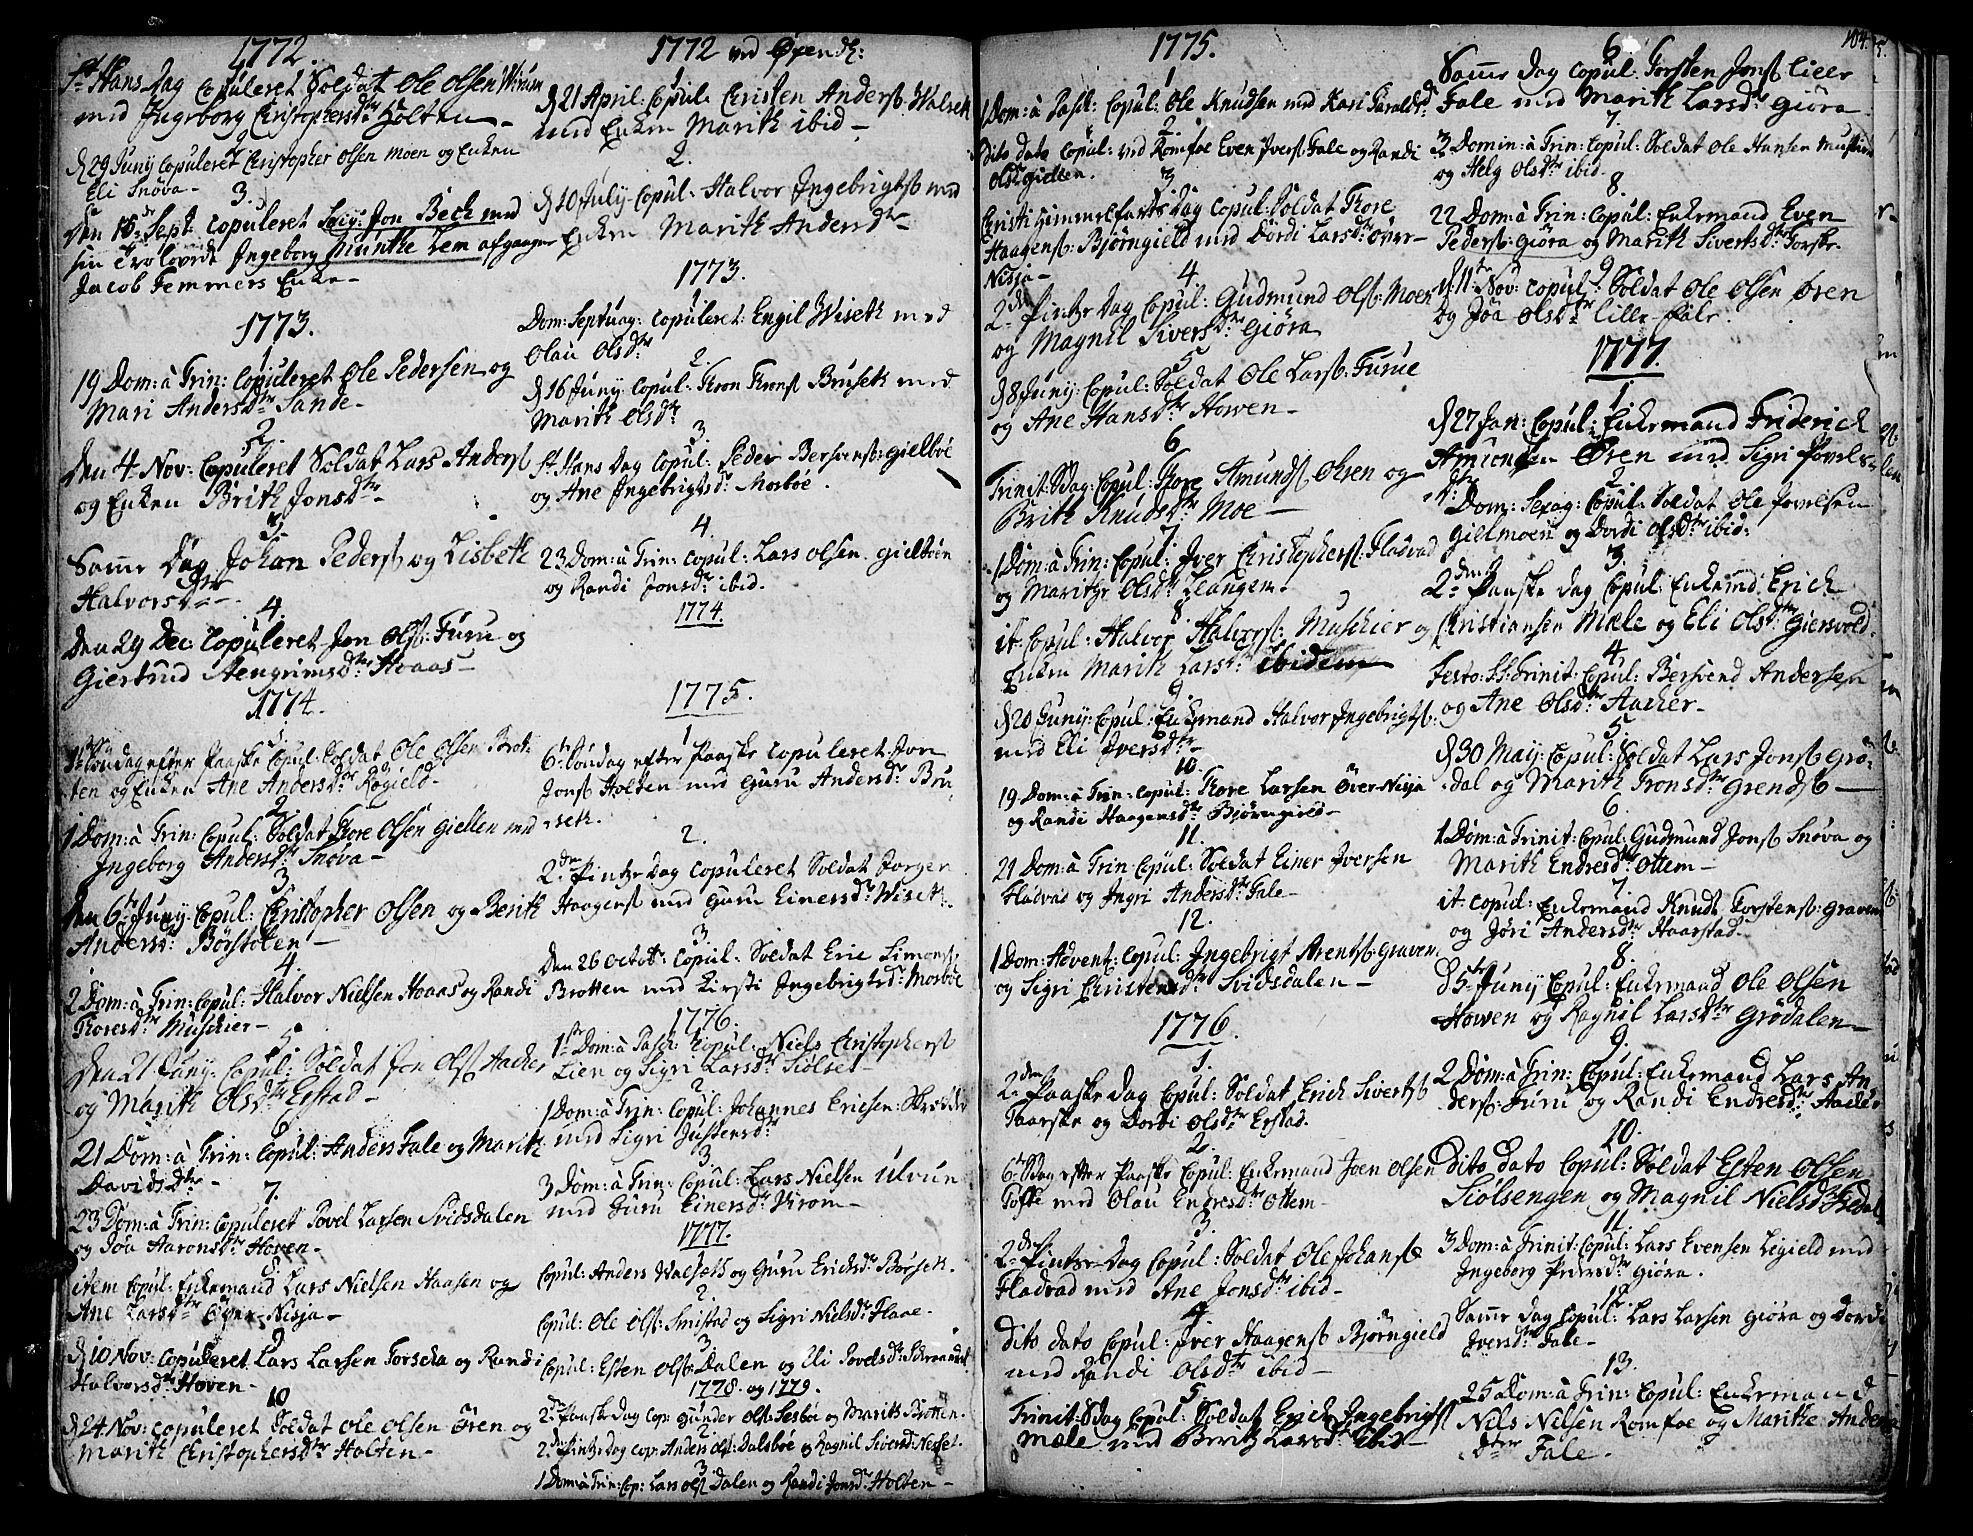 1772.
St Hans Dag Copuleret Soldat Ole Olsen Wirum
med Ingeborg Christophersdtr Holten
2
d 29 Juny Copuleret Christopher Olsen Moen og Enken
Eli Snøva
3.
Den 15 Sept. copuleret Jon Bech med
sin Trolovede Ingeborg Munthe Lem afgangne
Jacob Temmers Enke
1773.
1
19 Dom: à Trin: Copuleret Ole Pedersen og
Mari Andersdtr Sande
2.
Den 4 Nov: Copuleret Soldat Lars Anders
og Enken Brith Jonsdtr
3.
Samme Dag Johan Peders og Lisbeth
Halvorsdtr
4
Den 29 Dec: Copuleret Jon Ols: Furu og
Giertrud Arngrimsdtr Hoaas
1774.
1.
1te Søndag efter Paaske Copul: Soldat Ole Olsen Brot-
ten og Enken Ane Andersdtr Røgield
2
1 Dom: à Trin: Copul: Soldat Thore Olsen Giellen med
Ingeborg Andersdtr Snøva
3
Den 6te Juny Copul: Christopher Olsen og Berith
Andersd: Børstølen
4.
2 Dom: à Trin: Copul: Halvor Nielsen Hoaas og Randi
Thoresdtr Muschier
5
Den 21 Juny: Copul: Soldat Jon Ols Aacher
og Marith Olsdtr Erstad
6
21 Dom: à Trin: Copul: Anders Fale og Marith
Davidsdtr
7.
23 Dom: à Trin: Copuleret Povel Larsen Svidsdalen
og Jøa Aaronsdtr Hoven
8
item Copul: Enkemand Lars Nielsen Haasen og
Ane Larsdtr Over-Nisja
9
d 10 Nov: Copuleret Lars Larsen Forseda og Randi
Halvorsdtr Hoven
10
d 24 Nov: Copuleret Soldat Ole Olsen Ören og
Marith Christophersdtr Holten
1772 ved Øxend:
1
d 21 April: Copul: Christen Anders: Walseth
med Enken Marith ibid
2.
d 10 July: Copul: Halvor Ingebrigts med
Enken Marith Andersdtr
1773.
Dom: Septuag: Copuleret: Engil Wiseth med
Olau Olsdtr
2.
d 16 Juny: Copul: Tron Trons Bruseth med
Marith Olsdtr
3.
St Hans Dag Copul: Peder Bersvens: Gielbøe
og Ane Ingebrigtsdr Morbøe.
4.
23 Dom: à Trin: Copul: Lars Olsen Gielbøen
og Randi Jonsdr ibid.
1774.
1775.
1
6te Søndag efter Paaske Copuleret Jon
Jons Holten med Guru Andersdr Bru-
seth.
2.
2den Pintze Dag Copuleret Soldat Jorger
Haagens med Guru Einersdr Wiseth.
3
Den 26 Octobr: Copul: Soldat Eric Simons
Brotten med Kirsti Ingebrigtsdr Morbøe
1776.
1ste Dom: à Pasch: Copul: Niels Christophers
Lien og Sigri Larsdtr Siölset
2.
1 Dom: à Trin: Copul: Johannes Ericsen Skrødder
med Sigri Justensdtr
3.
3 Dom: à Trin: Copul: Lars Nielsen Ulvun
med Guru Einersdtr Virom
1777.
Copul: Anders Walseth og Guru Ericsdtr Börseth.
2.
Copul: Ole Ols: Smistad og Sigri Nielsdr Flaae.
3
Copul: Esten Ols: Dalen og Eli Povelsdr
1778. og 1779.
2den Paaske Dag Cop: Gunder Ols: Sesbøe og Marith Brotten.
2
2den Pintze Dag Cop: Anders Ols: Dalsbøe og Ragnil Siversd: Nesset.
3
1 Dom: à Trin: Cop: Lars Ols Dalen og Randi Jonsdtr Holten
1775.
1
1 Dom: à Pasch: Copul: Ole Knudsen med Kari Haraldsdr
2.
Dito dato Copul: ved Romfoe Even Ivers: Fale og Randi
Olsdr Giellen.
3
Christi Himmelfarts Dag Copul: Soldat Thore
Haagens: Bjørngield med Dordi Larsdtr Over-
Nisja
4
2den Pintze Dag Copul: Gudmund Ols: Moen
og Magnil Siversdtr Giøra
5
d 8 Juny: Copul: Soldat Ole Lars: Furue
og Ane Hansdtr Howen
6
Trinit: Sdag: Copul: Thore Amunds Ören og
Brith Knudsdtr Moe
7
1 Dom: à Trin: Copul: Iver Christophers: Fladvad
og Marith Olsdtr Flangem.
8
it: Copul: Halvor Halvors: Muschier og
Enken Marith Larsdtr ibidem
9.
d 20 Juny: Copul: Enkemand Halvor Ingebrigts:
med Eli Iversdtr
10
19 Dom: à Trin: Copul: Thore Larsen Över-Nisja
og Randi Haagensdtr Bjørngield
11.
21 Dom: à Trin: Copul: Soldat Einer Iversen
Fladvad og Ingri Andersdtr Fale
12.
1 Dom: Advent: Copul: Ingebrigt Arents: Graven
og Sigri Christensdtr Svidsdalen
1776.
1.
2den Paaske Dag Copul: Soldat Erich Siverts
Taarske og Dordi Olsdtr Erstad.
2.
6te Sdag efter Paaske Copul: Enkemand Joen Olsen
Toske med Olau Endresdtr Ottem
3.
2den Pintze-Dag Copul: Soldat Ole Johans
Fladvad med Ane Jonsdtr ibid
4
Dito dato Copul: Iver Haagens Bjørngield
med Randi Olsdtr ibid
5.
Trinit: Sdag Copul: Soldat Erich Ingebrigts
Mæle med Berith Larsdtr ibid
104.
6
Samme Dag Copul: Torsten Jons Lille
Fale med Marith Larsdtr Giöra
7.
3 Domin: à Trin: Copul: Soldat Ole Hansen Muskier
og Helg Olsdtr ibid.
8.
22 Dom: à Trin: Copul: Enkemand Even
Peders: Giöra og Marith Sivertsdtr Torske
9
d 11te Nov: Copul: Soldat Ole Olsen Ören
og Jøa Olsdtr Lille-Fale.
1777.
1
d 27 Jan: Copul: Enkemand Friderich
Amundsen Ören med Sigri Povels-
dtr
2
Dom: Sexag: Copul: Soldat Ole Povelsen
Gielmoen og Dordi Olsdtr ibid:
3.
2den Paaske Dag Copul: Enkemd Erich
Christiansen Mæle og Eli Olsdtr Giersvold.
4
Festo: SS: Trinit: Copul: Bersvend Andersen
og Ane Olsdtr Aacher
5.
d 30 May: Copul: Soldat Lars Jons Grö-
dal og Marith Tronsdtr Grends
6.
1 Dom: à Trinit: Copul: Gudmund Jons Snöva og
Marith Endresdtr Ottem
7.
it: Copul: Enkemand Knudt Torstens: Graven
og Jöri Andersdtr Haarstad.
8.
d 5te Juny Copul: Enkemand Ole Olsen
Howen og Ragnil Larsdtr Grödalen
9.
2 Dom: à Trin: Copul: Enkemand Lars An-
ders: Furu og Randi Endresdtr Aacher
10.
Dito dato Copul: Soldat Esten Olsen
Siölsengen og Magnil Nielsdtr
11.
3 Dom: à Trinit: Copul: Lars Evensen Legield med
Ingeborg Pedersdtr Giöra.
12
Samme Dag Copul: Lars Larsen Giöra og Dordi
Iversdtr Fale
13.
25 Dom: à Trin: Copul: Enkemand
Nils Nilsen Romfoe og Marithe Anders
dtter Fale.